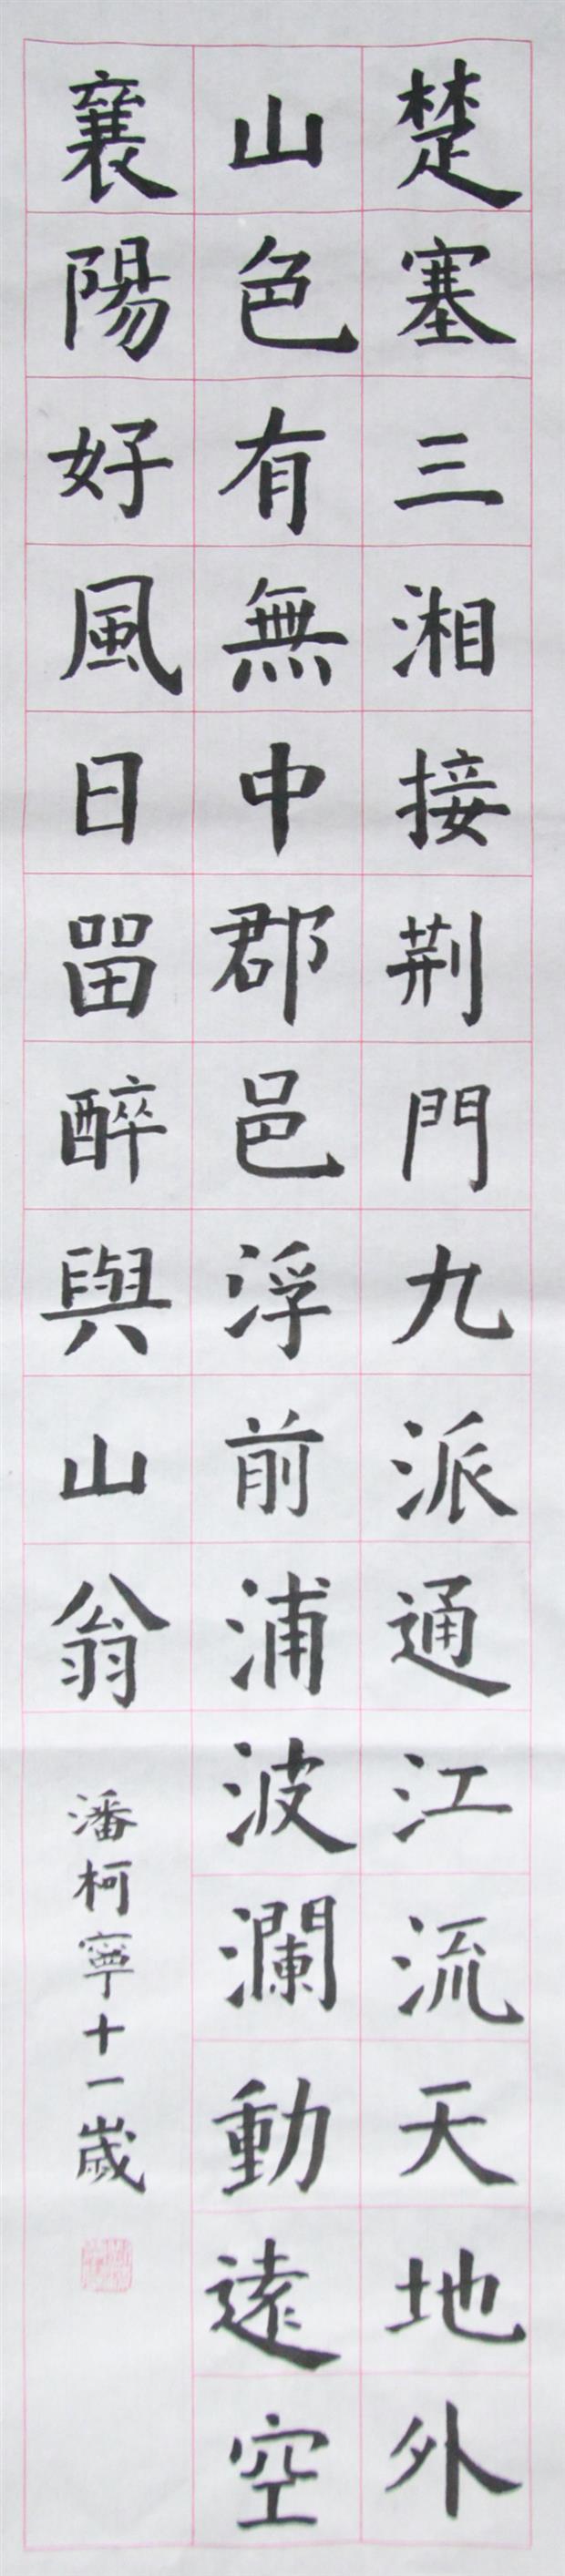 楚塞三湘接荆門九派通江流天地外
山色有無中郡邑浮前浦波瀾動遠空
襄陽好風日畱醉與山翁
潘柯寧十一歲